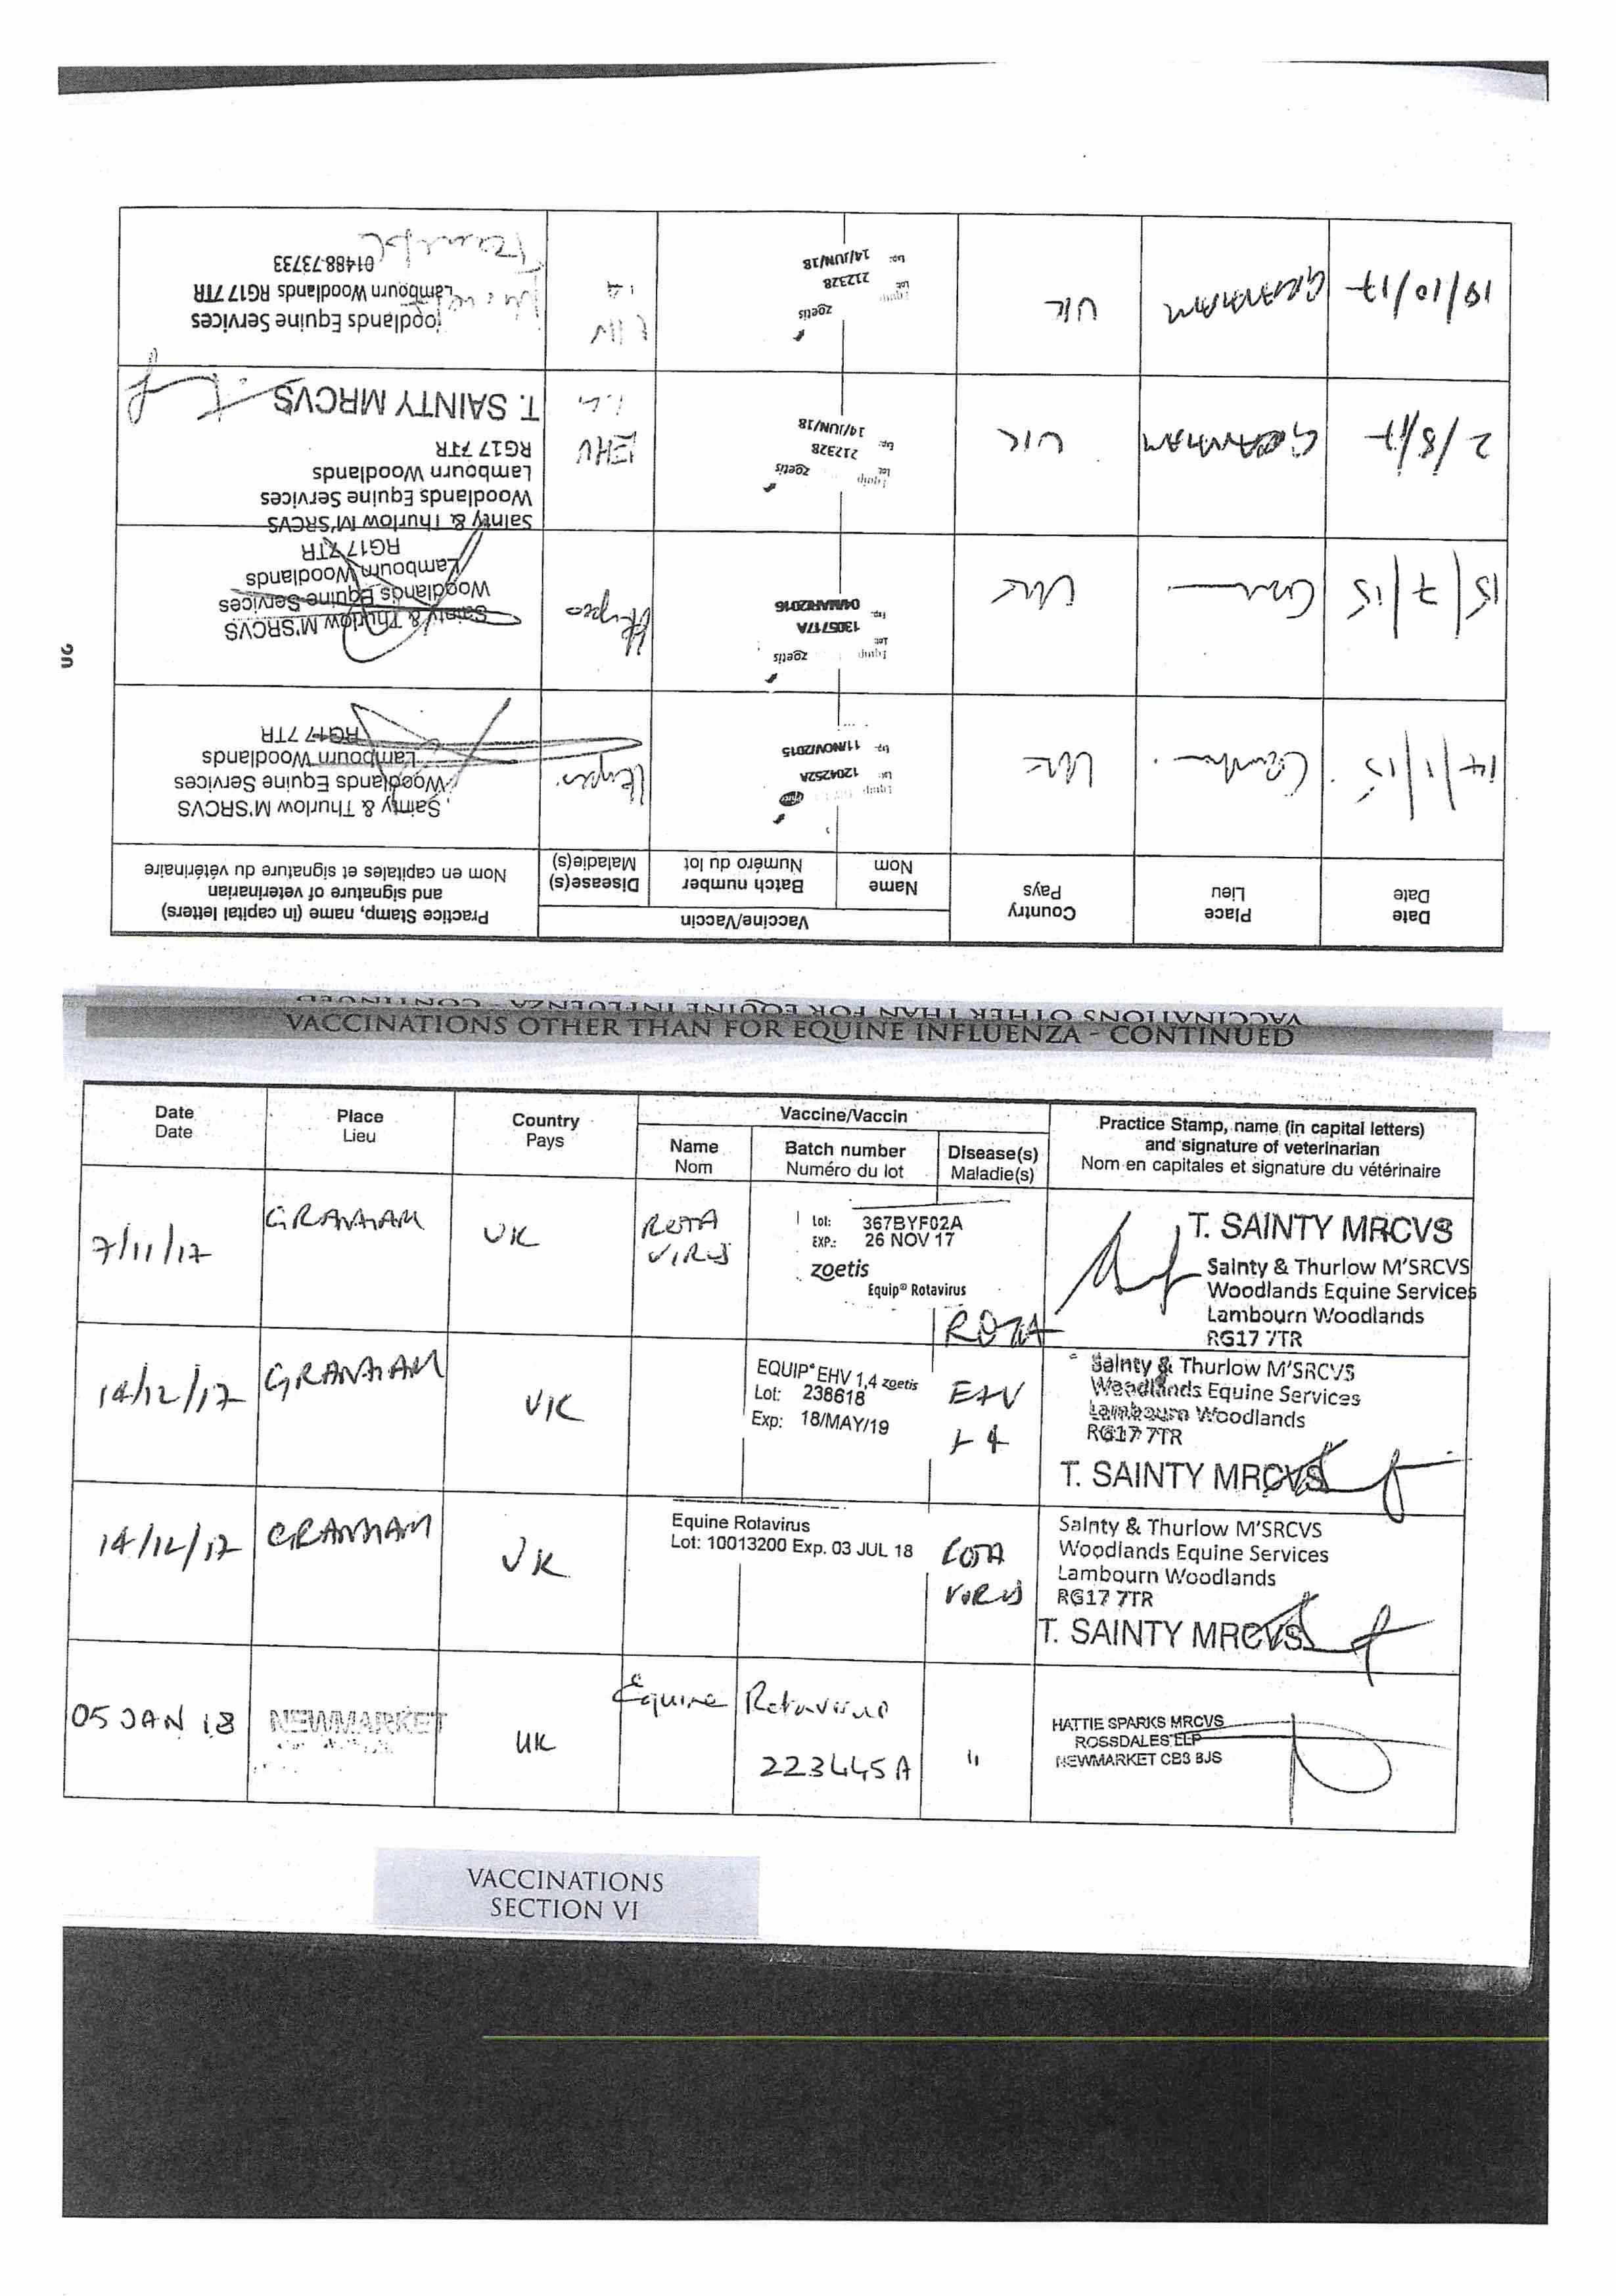 VACCINATIONS OTHER THAN FOR EQUINE INFLUENZA - CONTINUED
Date Place Country Vaccine/Vaccin Practice Stamp, name (in capital letters)
Date Lieu Pays Name Batch number Disease(s) and signature of veterinarian
Nom Numéro du lot Maladie(s) Nom en capitales et signature du vétérinaire
14/1/15 UK
Equip
Lot: 1204252A
Exp: 11/NOV/2015
Sainty & Thurlow M'SRCVS
Woodlands Equine Services
Lambourn Woodlands
RG17 7TR
15/7/15 UK
Equip zoetis
Lot: 1305717A
Exp: 04/MAR/2016
Sainty & Thurlow M'SRCVS
Woodlands Equine Services
Lambourn Woodlands
RG17 7TR
2/8/17 GRANHAM UK
Equip zoetis
Lot: 212328
Exp: 14/JUN/18
EHV
Sainty & Thurlow M'SRCVS
Woodlands Equine Services
Lambourn Woodlands
RG17 7TR
T. SAINTY MRCVS
GRANHAM UK
Equip zoetis
212328
Exp: 14/JUN/18
EHV
oodlands Equine Services
Lambourn Woodlands RG17 7TR
01488-73733
20
VACCINATIONS OTHER THAN FOR EQUINE INFLUENZA - CONTINUED
Date Place Country Vaccine/Vaccin Practice Stamp, name (in capital letters)
Date Lieu Pays Name Batch number Disease(s) and signature of veterinarian
Nom Numéro du lot Maladie(s) Nom en capitales et signature du vétérinaire
7/11/17 GRANHAM UK ROTA
VIRUS
Lot: 367BYF02A
EXP.: 26 NOV 17
zoetis
Equip® Rotavirus
ROTA
T. SAINTY MRCVS
Sainty & Thurlow M'SRCVS
Woodlands Equine Services
Lambourn Woodlands
RG17 7TR
14/12/17 GRANHAM UK
EQUIP® EHV 1,4 zoetis
Lot: 236618
Exp: 18/MAY/19
EHV
1 4
Sainty & Thurlow M'SRCVS
Woodlands Equine Services
Lambourn Woodlands
RG17 7TR
T. SAINTY MRCVS
14/12/17 GRANHAM UK
Equine Rotavirus
Lot: 10013200 Exp. 03 JUL 18
ROTA
VIRUS
Sainty & Thurlow M'SRCVS
Woodlands Equine Services
Lambourn Woodlands
RG17 7TR
T. SAINTY MRCVS
05 JAN 18 NEWMARKET UK
Equine Rotavirus
223445A "
HATTIE SPARKS MRCVS
ROSSDALES LLP
NEWMARKET CB8
VACCINATIONS
SECTION VI